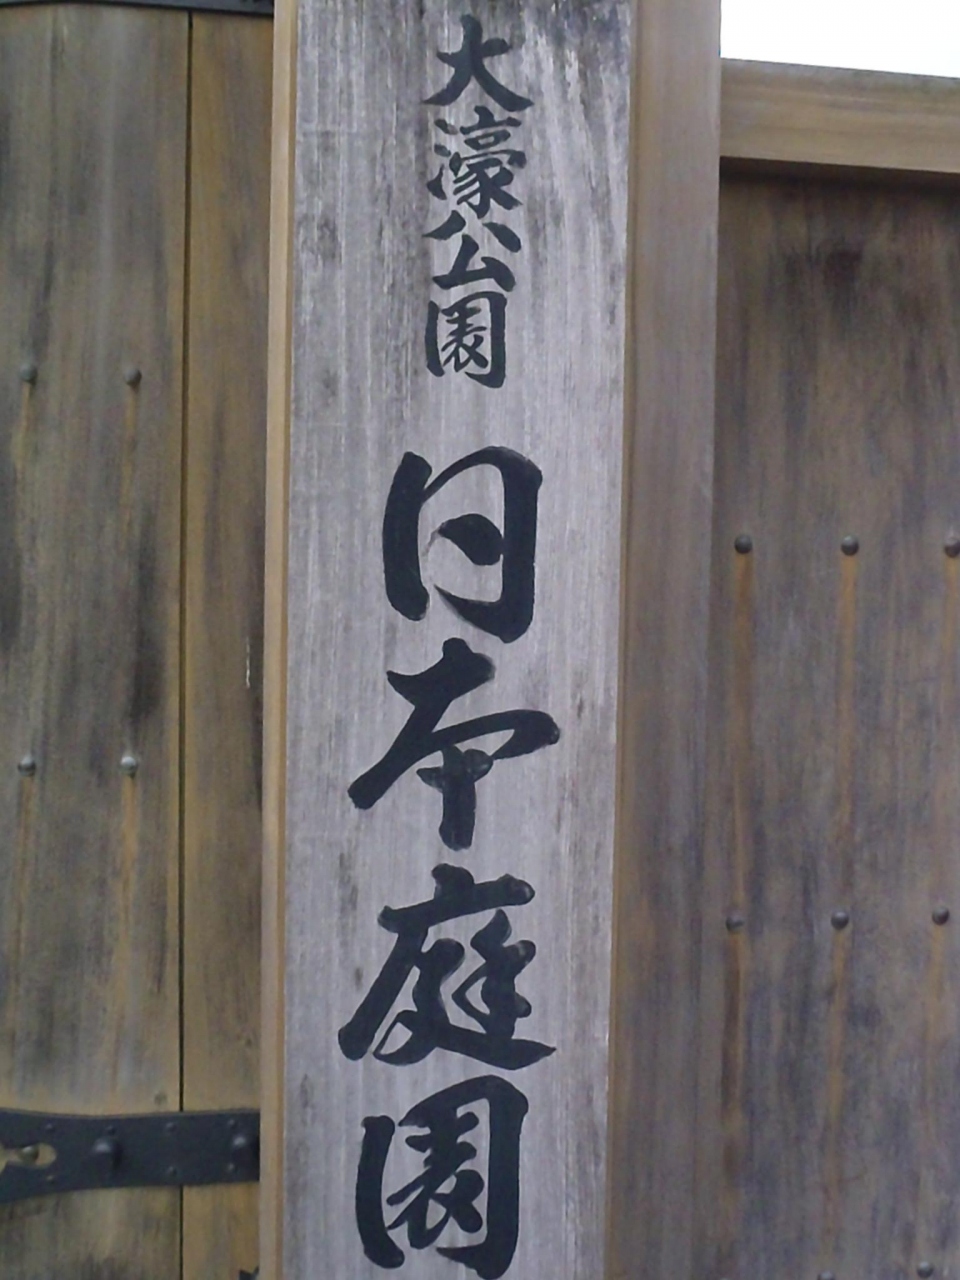 大濠公園
日本庭園